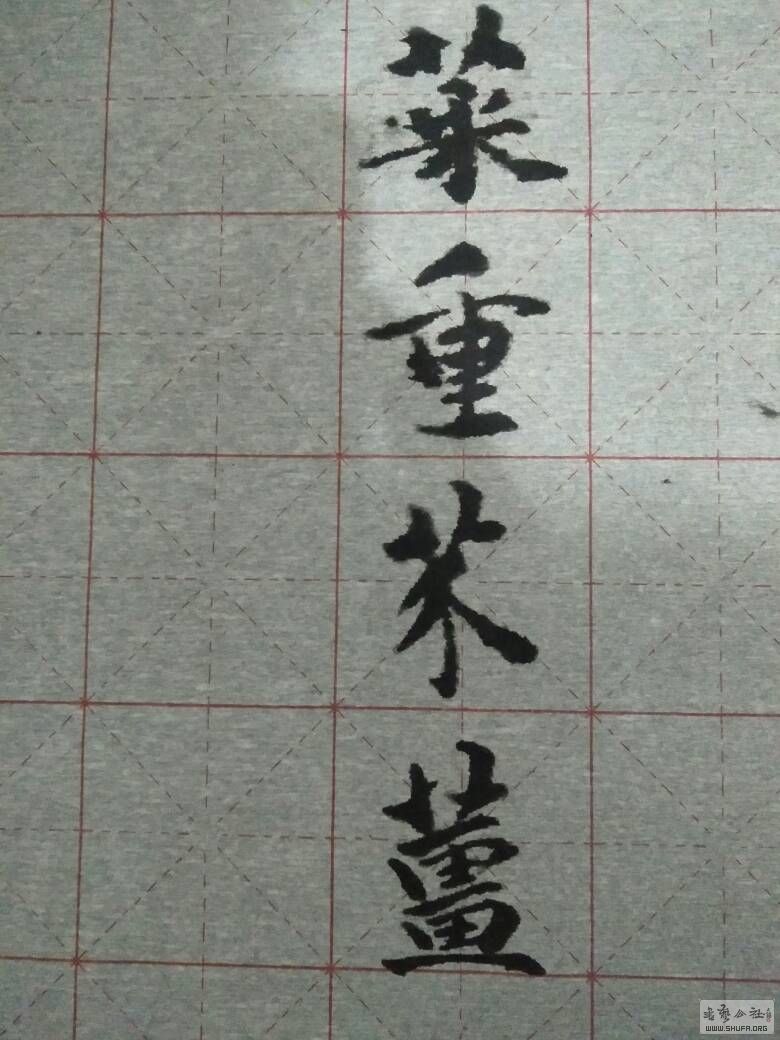 菜重芥薑
書藝公社
WWW.SHUFA.ORG